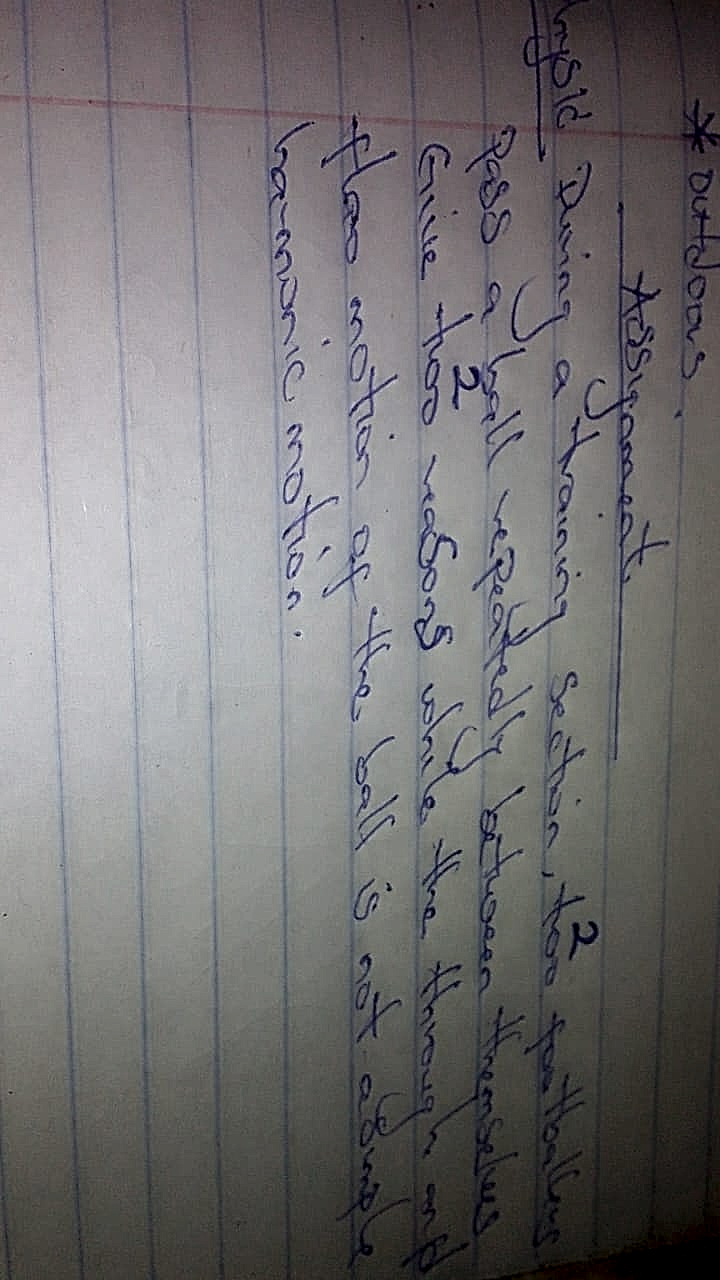 * outdoors.
Assignment
During a training section, two 2 footballers
pass a ball repeatedly between themselves
Give two 2 reasons while the through and
flow motion of the ball is not a simple
harmonic motion.